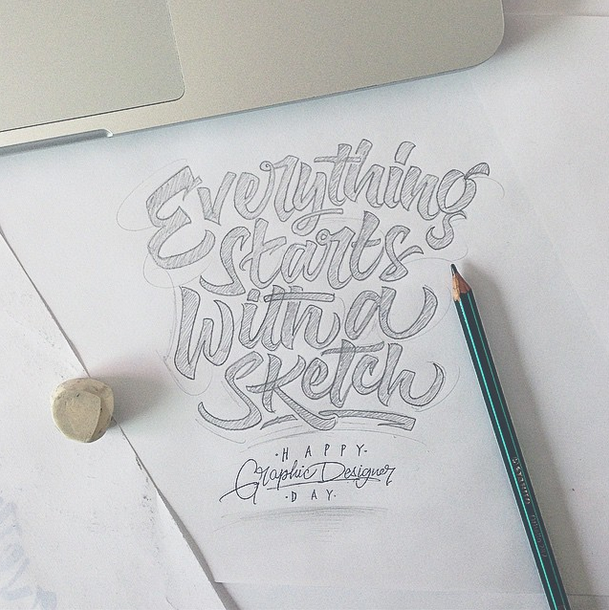 Everything
starts
with a
Sketch
· HAPPY ·
Graphic Designer
· DAY ·